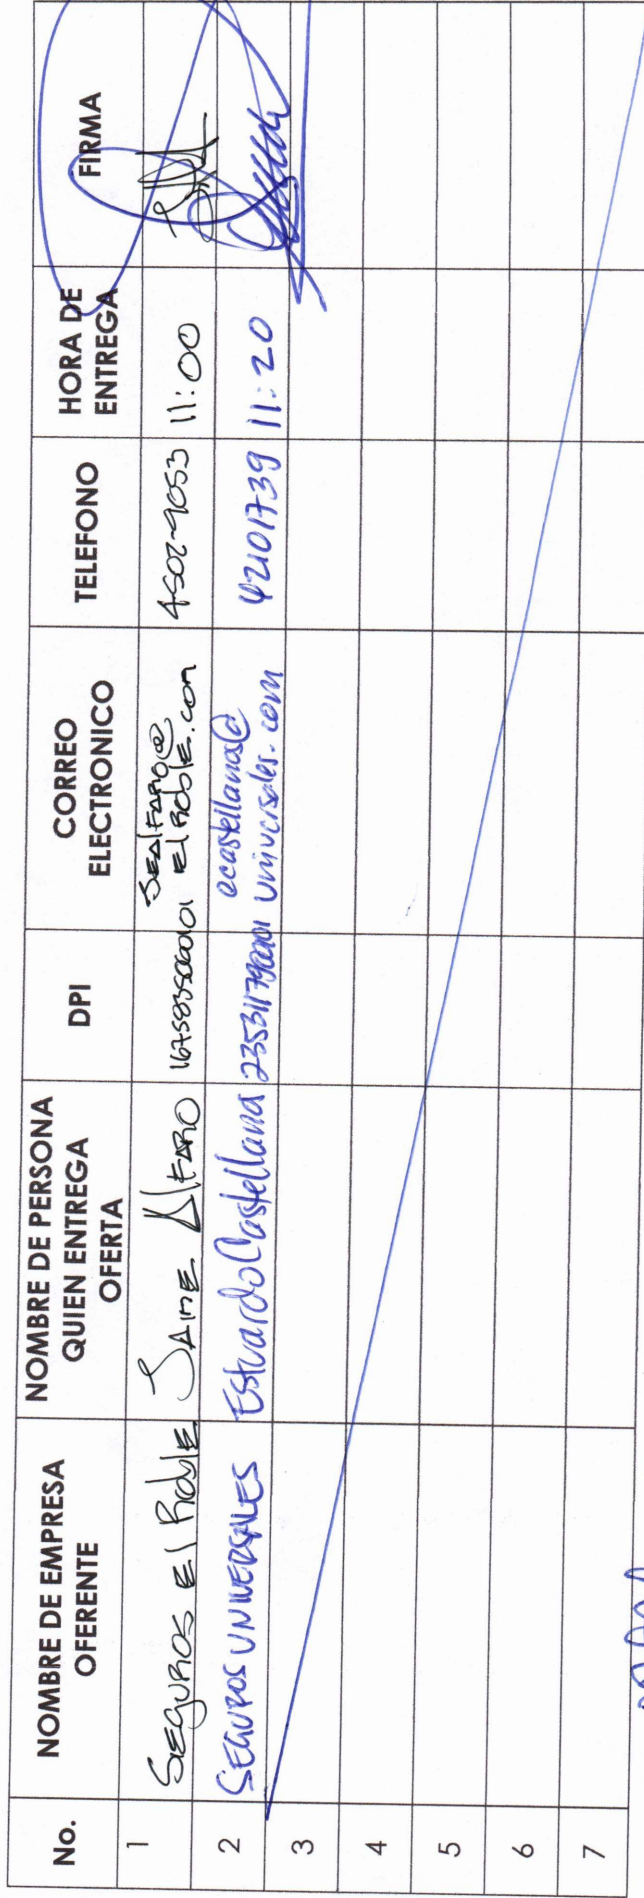 No.
NOMBRE DE EMPRESA
OFERENTE
NOMBRE DE PERSONA
QUIEN ENTREGA
OFERTA
DPI
CORREO
ELECTRONICO
TELEFONO
HORA DE
ENTREGA
FIRMA
1
SEGUROS El Roble
JAIME Alfaro
JEAlfaro@
ElRoble.com
4502-9053
11:00
2
SEGUROS UNIVERSALES
Estuardo Castellana
ecastellana@
universales.com
42101739
11:20
3
4
5
6
7